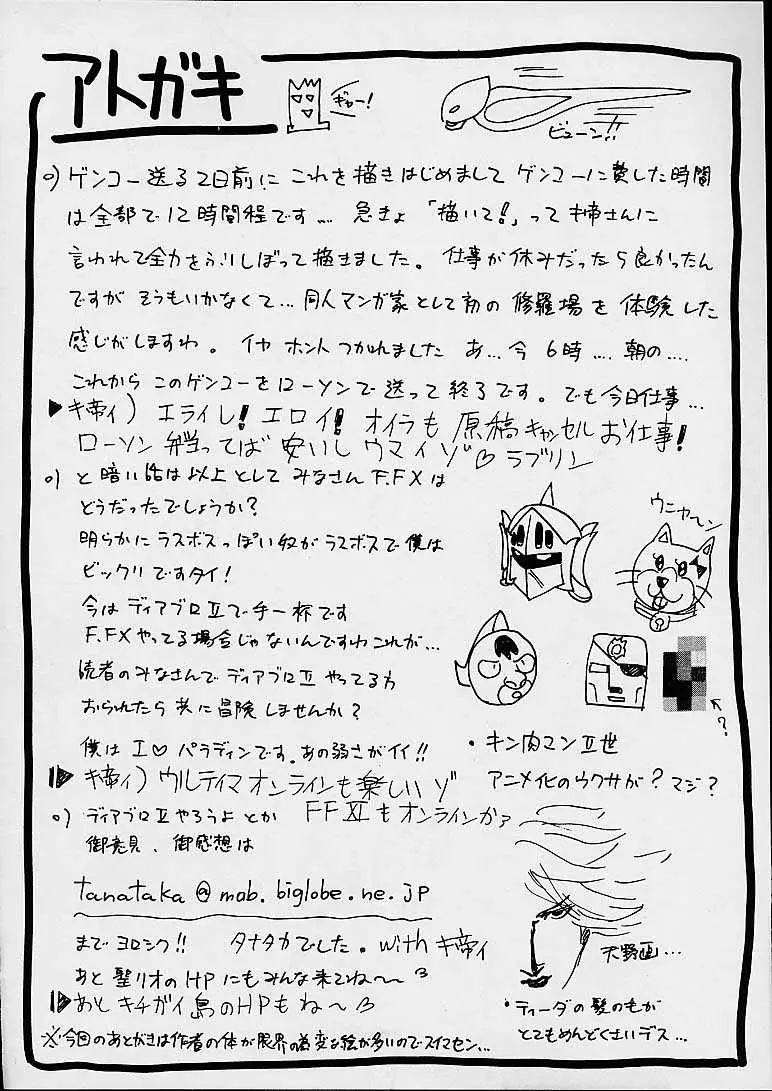 アトガキ
ギャー!
ビューン!!
○) ゲンコー送る2日前に これを描きはじめまして ゲンコーに費した時間
は全部で12時間程です…. 急きょ 「描いて!」って キ帝さんに
言われて全力をふりしぼって描きました。仕事が休みだったら良かったん
ですが そうもいかなくて… 同人マンガ家として初の 修羅場を 体験した
感じがしますわ。イヤ ホント つかれました あ… 今 6時 …. 朝の….
これから このゲンコーをローソンで送って終了です。でも今日仕事…
▶キ帝ィ) エライし! エロイ! オイラも 原稿キャンセル お仕事!
ローソン弁当ってば 安いし ウマイゾ♡ ラブリン
○) と暗い話は以上として みなさん F.FXは
どうだったでしょうか?
明らかにラスボスっぽい奴が ラスボスで僕は
ビックリですタイ!
今は ディアブロⅡで手一杯です
F.FXやってる場合じゃないんですわこれが…
読者のみなさんで ディアブロⅡ やってる方
おられたら 共に冒険しませんか?
僕は I♡ パラディンです。あの弱さがイイ!!
▶キ帝ィ) ウルティマオンラインも楽しいゾ
ウニャ〜ン
?
・キン肉マンⅡ世
アニメ化のウワサが? マジ?
○) ディアブロⅡやろうよ とか FFⅪもオンラインかァ
御意見、御感想は
tanataka@mob.biglobe.ne.jp
まで ヨロシク!! タナタカでした。with キ帝ィ
あと 聖リオのHPにもみんな来てね〜
▶あと キチガイ島のHPもね〜
天野画…
・ティーダの髪のもが
とてもめんどくさいデス…
※今回のあとがきは作者の体が限界の為変な絵が多いのでスイマセン…